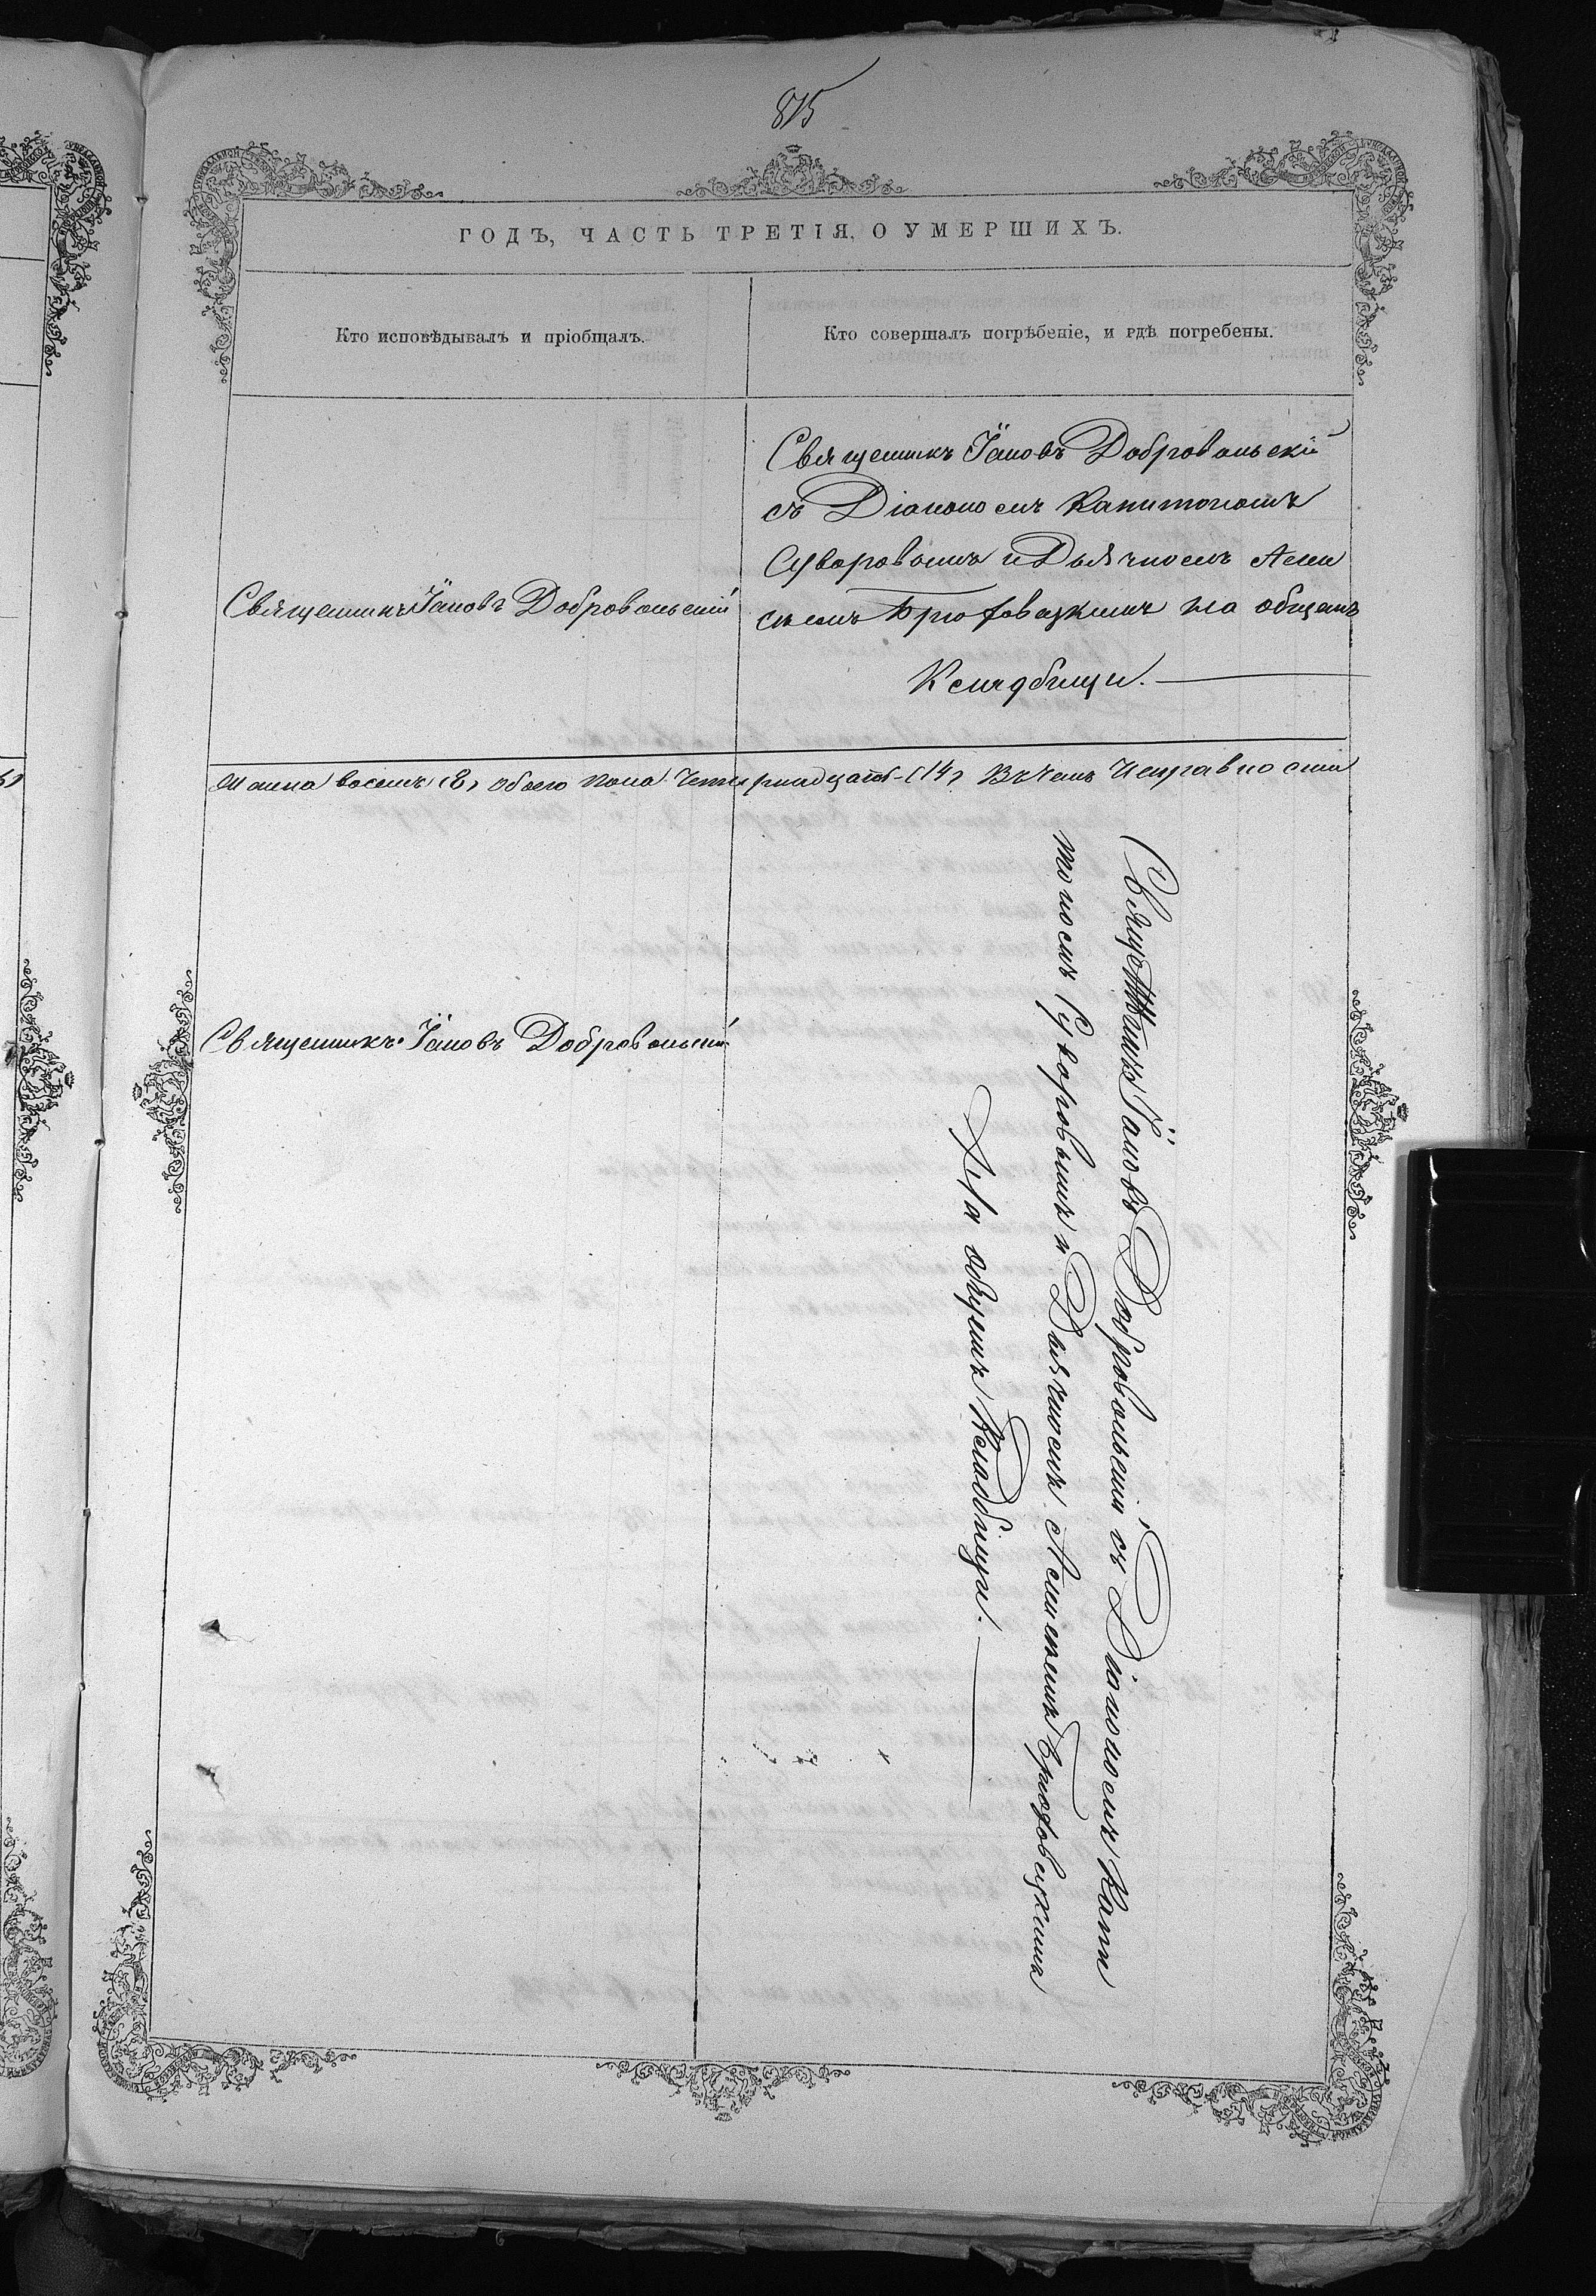 815
ГОДЪ, ЧАСТЬ ТРЕТІЯ, О УМЕРШИХЪ.
Кто исповѣдывалъ и пріобщалъ.
Кто совершалъ погрѣбеніе, и гдѣ погребены.
Священникъ Іаковъ Добровольскій
Священникъ Іаковъ Добровольскій
съ Діакономъ Капитономъ
Суворовымъ и Дьячкомъ Алек
сѣемъ Брюховецкимъ на общемъ
Кладбищи.
женска восемь (8) обоего пола Четырнадцать (14) Въ чемъ Исправности
Священникъ Іаковъ Добровольскій
Священникъ Іаковъ Добровольскій съ Діакономъ Капи
тономъ Суворовымъ и Дьячкомъ Алексѣемъ Брюховецкимъ
На общемъ Кладбищи.